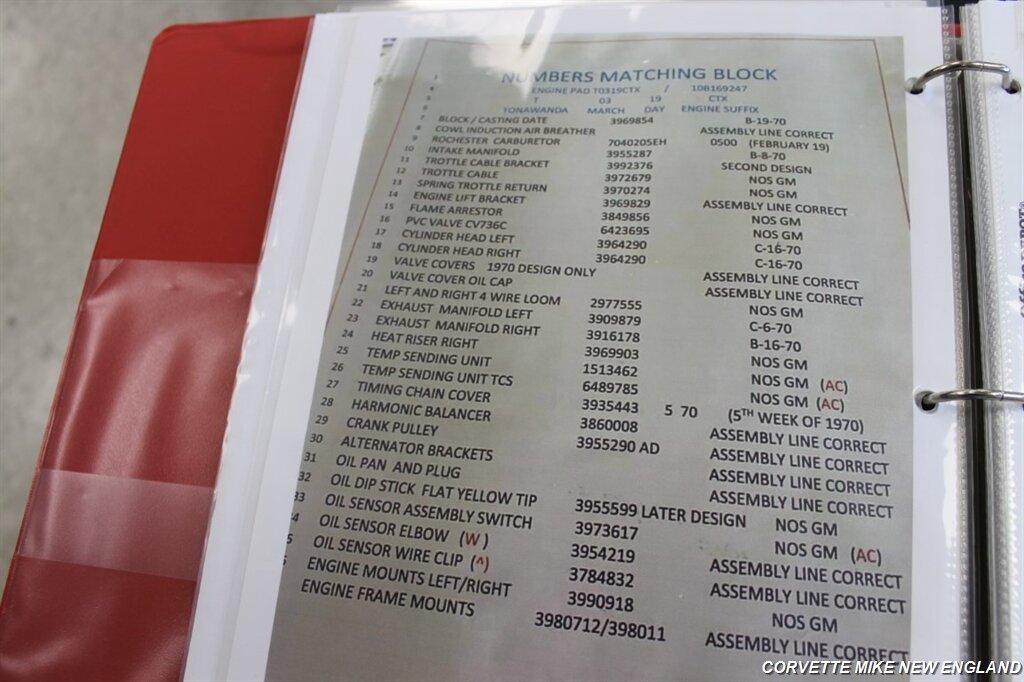 NUMBERS MATCHING BLOCK
4 ENGINE PAD T0319CTX / 10B169247
5 T 03 19 CTX
6 TONAWANDA MARCH DAY ENGINE SUFFIX
7 BLOCK / CASTING DATE 3969854 B-19-70
8 COWL INDUCTION AIR BREATHER ASSEMBLY LINE CORRECT
9 ROCHESTER CARBURETOR 7040205EH 0500 (FEBRUARY 19)
10 INTAKE MANIFOLD 3955287 B-8-70
11 TROTTLE CABLE BRACKET 3992376 SECOND DESIGN
12 TROTTLE CABLE 3972679 NOS GM
13 SPRING TROTTLE RETURN 3970274 NOS GM
14 ENGINE LIFT BRACKET 3969829 ASSEMBLY LINE CORRECT
15 FLAME ARRESTOR 3849856 NOS GM
16 PVC VALVE CV736C 6423695 NOS GM
17 CYLINDER HEAD LEFT 3964290 C-16-70
18 CYLINDER HEAD RIGHT 3964290 C-16-70
19 VALVE COVERS 1970 DESIGN ONLY ASSEMBLY LINE CORRECT
20 VALVE COVER OIL CAP ASSEMBLY LINE CORRECT
21 LEFT AND RIGHT 4 WIRE LOOM 2977555 NOS GM
22 EXHAUST MANIFOLD LEFT 3909879 C-6-70
23 EXHAUST MANIFOLD RIGHT 3916178 B-16-70
24 HEAT RISER RIGHT 3969903 NOS GM
25 TEMP SENDING UNIT 1513462 NOS GM (AC)
26 TEMP SENDING UNIT TCS 6489785 NOS GM (AC)
27 TIMING CHAIN COVER 3935443 5 70 (5TH WEEK OF 1970)
28 HARMONIC BALANCER 3860008 ASSEMBLY LINE CORRECT
29 CRANK PULLEY 3955290 AD ASSEMBLY LINE CORRECT
30 ALTERNATOR BRACKETS ASSEMBLY LINE CORRECT
31 OIL PAN AND PLUG ASSEMBLY LINE CORRECT
32 OIL DIP STICK FLAT YELLOW TIP 3955599 LATER DESIGN NOS GM
33 OIL SENSOR ASSEMBLY SWITCH 3973617 NOS GM (AC)
4 OIL SENSOR ELBOW (W) 3954219 ASSEMBLY LINE CORRECT
5 OIL SENSOR WIRE CLIP (^) 3784832 ASSEMBLY LINE CORRECT
ENGINE MOUNTS LEFT/RIGHT 3990918 NOS GM
ENGINE FRAME MOUNTS 3980712/398011 ASSEMBLY LINE CORRECT
CORVETTE MIKE NEW ENGLAND